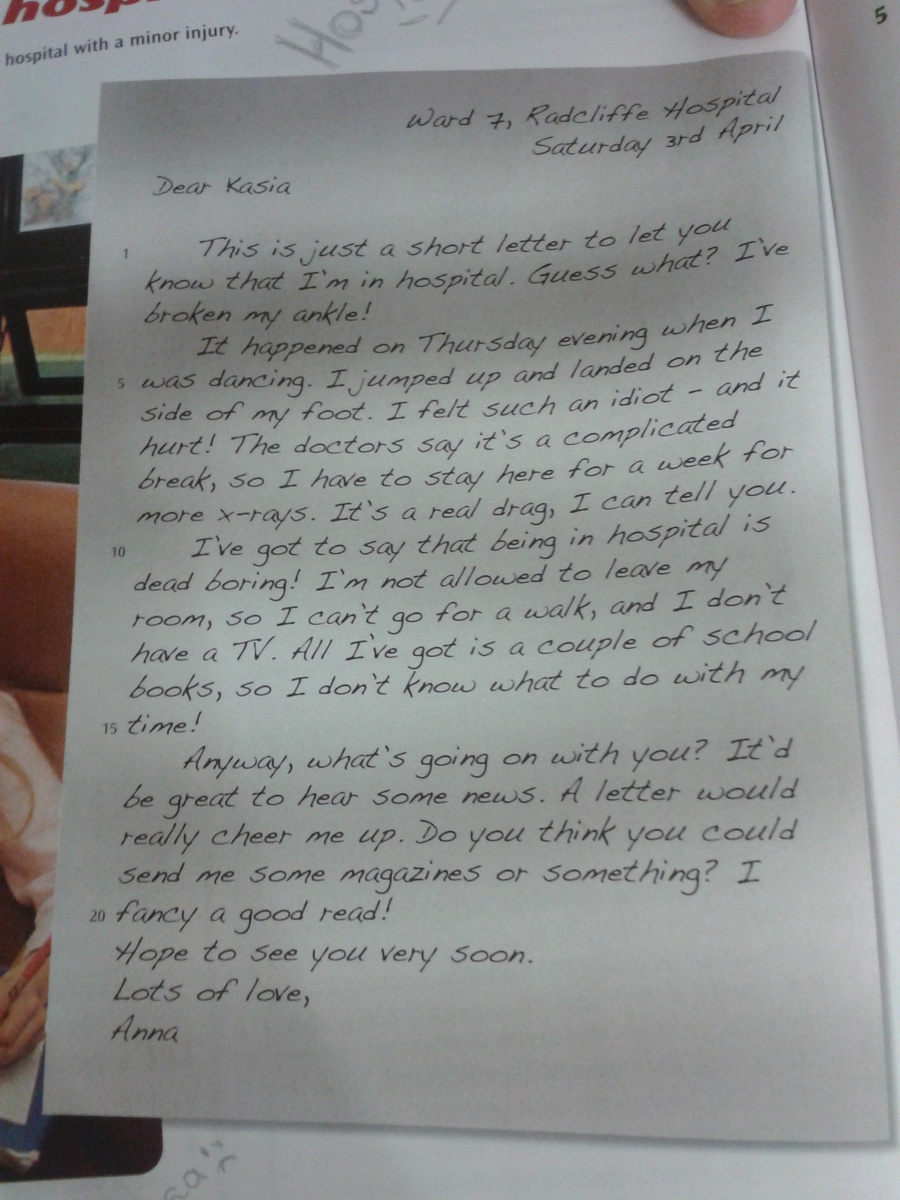 hospital with a minor injury.
5
Ward 7, Radcliffe Hospital
Saturday 3rd April
Dear Kasia
1 This is just a short letter to let you
know that I'm in hospital. Guess what? I've
broken my ankle!
It happened on Thursday evening when I
5 was dancing. I jumped up and landed on the
side of my foot. I felt such an idiot - and it
hurt! The doctors say it's a complicated
break, so I have to stay here for a week for
more x-rays. It's a real drag, I can tell you.
10 I've got to say that being in hospital is
dead boring! I'm not allowed to leave my
room, so I can't go for a walk, and I don't
have a TV. All I've got is a couple of school
books, so I don't know what to do with my
15 time!
Anyway, what's going on with you? It'd
be great to hear some news. A letter would
really cheer me up. Do you think you could
send me some magazines or something? I
20 fancy a good read!
Hope to see you very soon.
Lots of love,
Anna